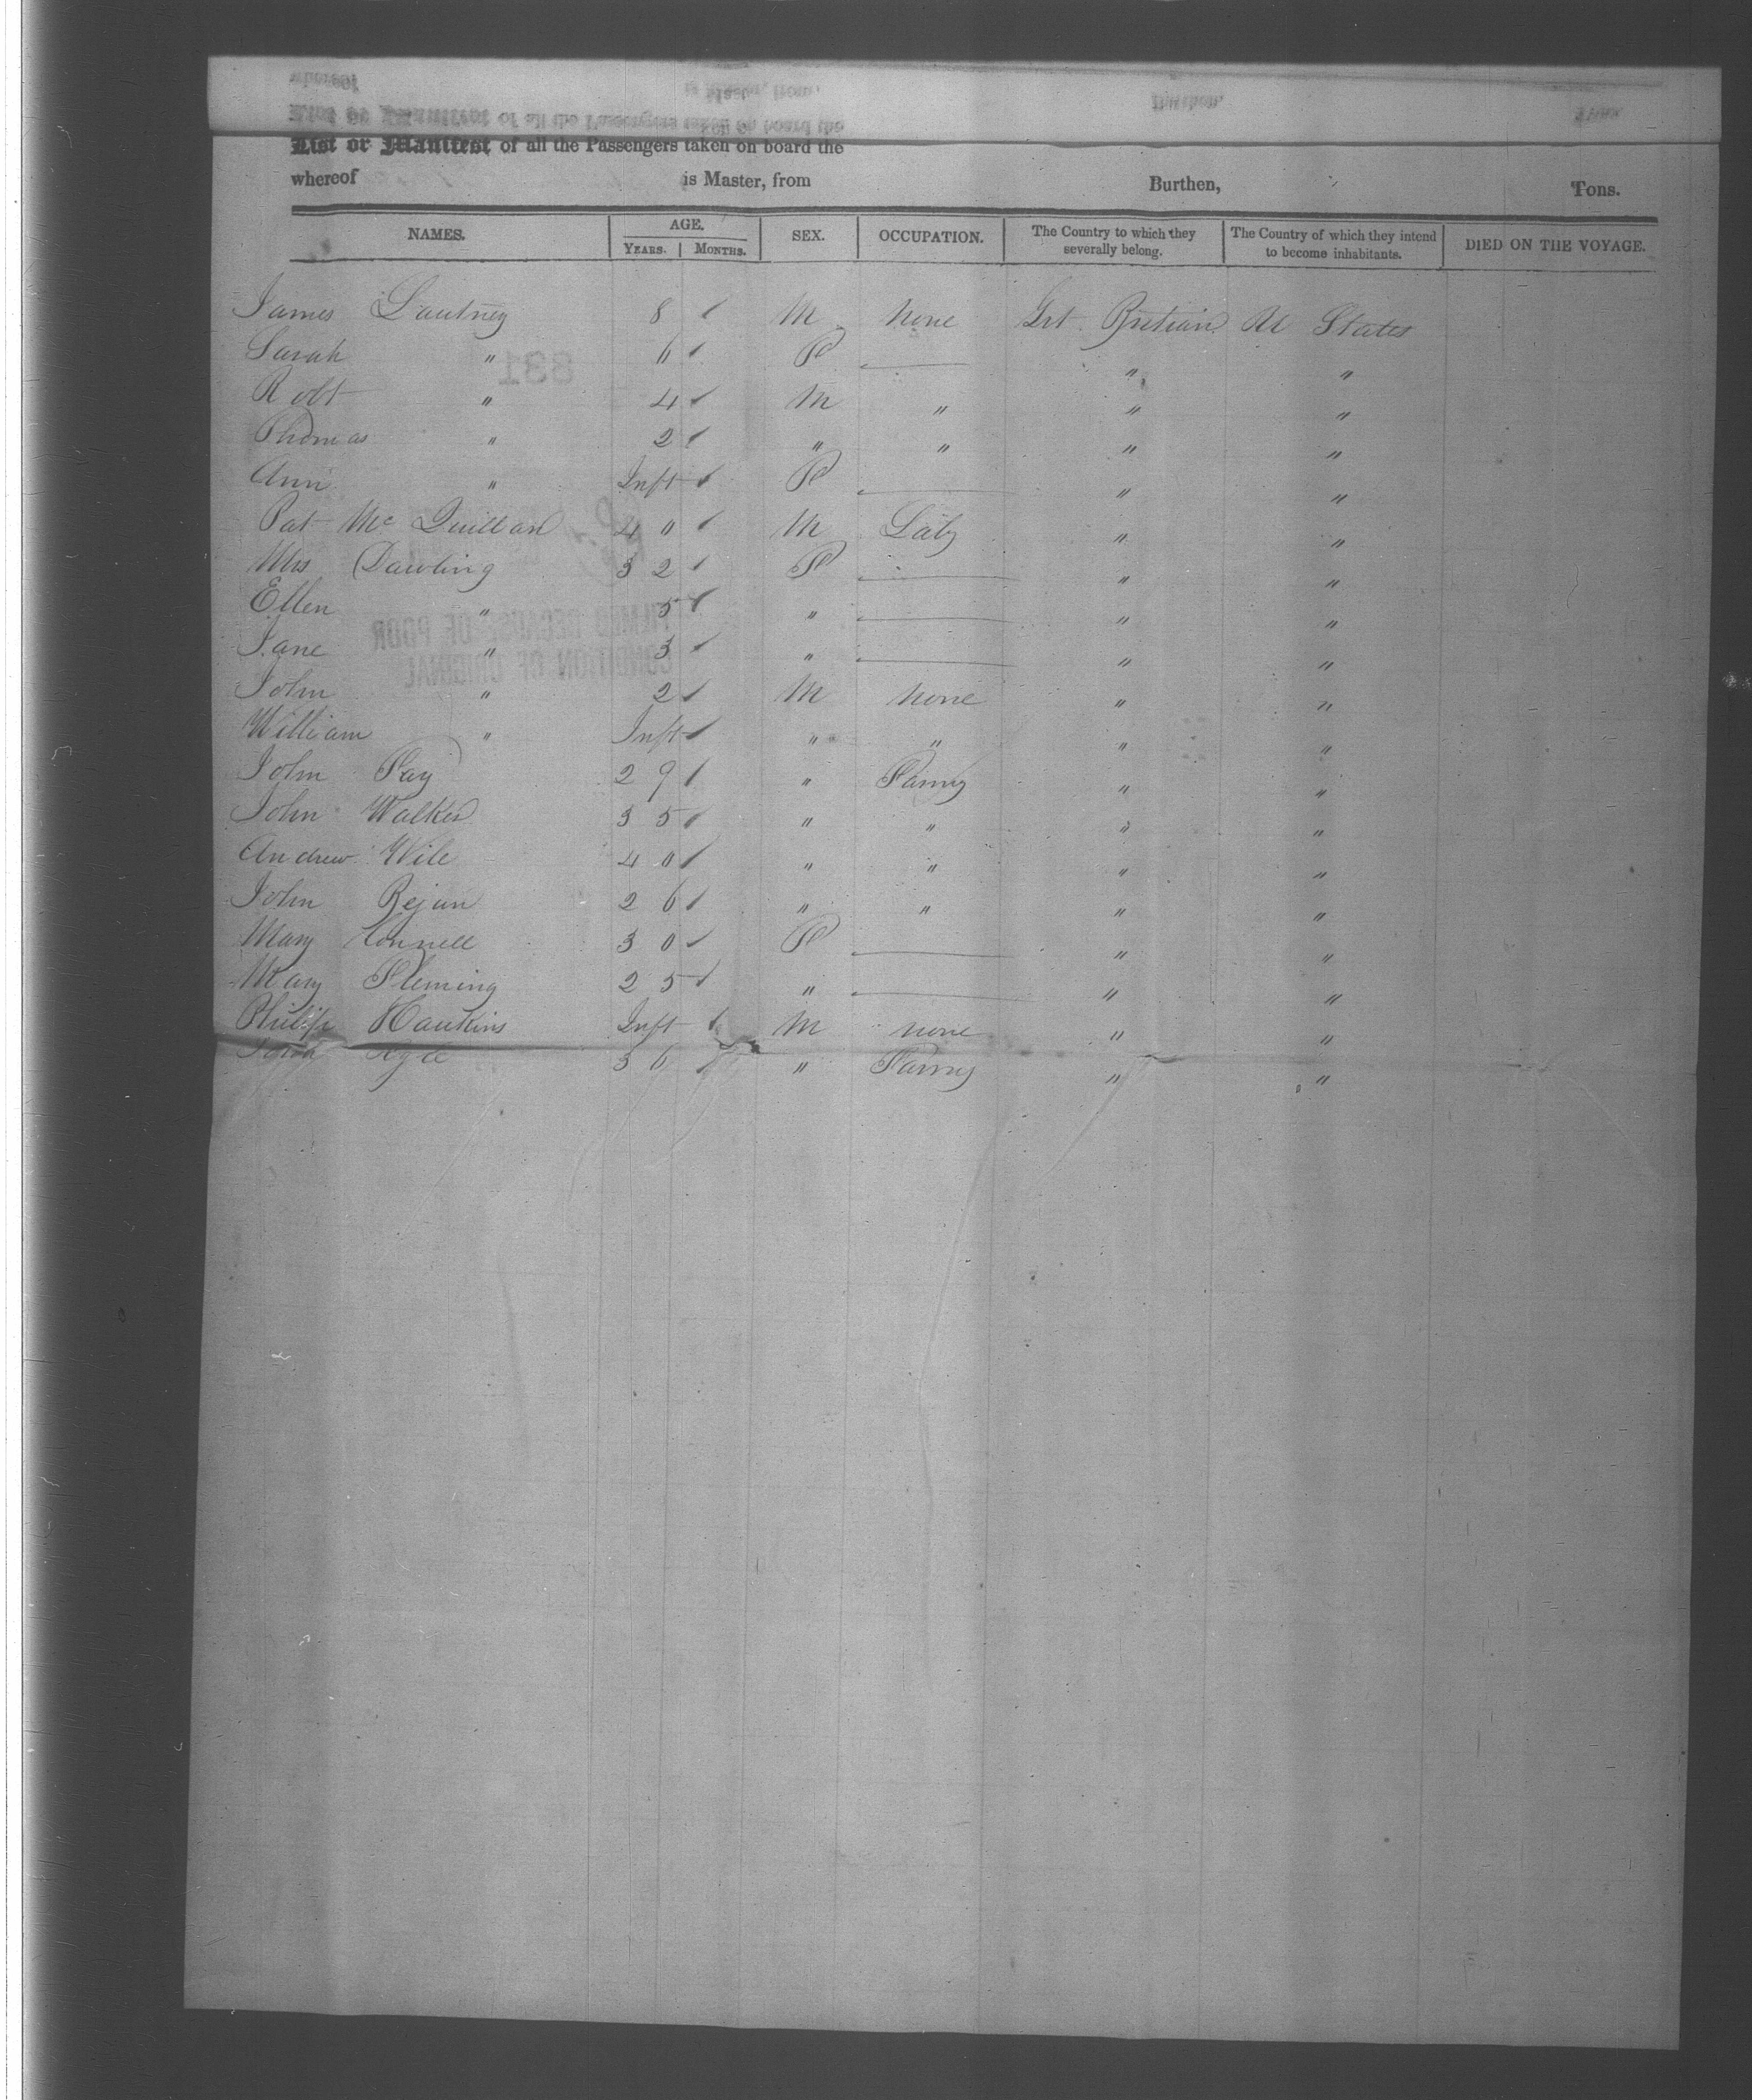 List or Manifest of all the Passengers taken on board the
whereof is Master, from Burthen, Tons.
NAMES. AGE. SEX. OCCUPATION. The Country to which they severally belong. The Country of which they intend to become inhabitants. DIED ON THE VOYAGE.
YEARS. MONTHS.
James 8 M none Grt Britian U States
Sarah " 6 F " "
Robt " 4 M " " "
Thomas " 2 " " " "
Ann " Inft F " "
Pat Mc Quillan 40 M Laby " "
Mrs Dawling 32 F " "
Ellen " 5 " " "
Jane " 3 " " "
John " 2 M none " "
William " Inft " " " "
John Fay 29 " Farmg " "
John Walker 35 " " " "
Andrew Wile 40 " " " "
John 26 " " " "
Mary Connell 30 F " "
Mary Fleming 25 " " "
Philip Hawkins Inft M none " "
36 " Farmg " "
831
FILMED BECAUSE OF POOR
CONDITION OF ORIGINAL